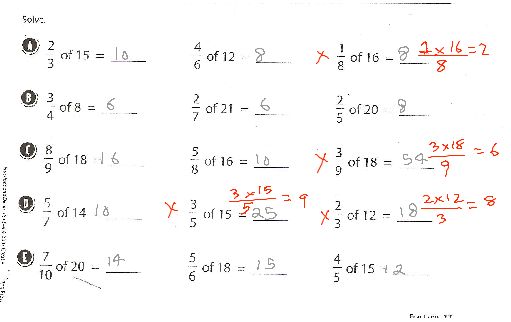 Solve.
A 2/3 of 15 = 10 4/6 of 12 = 8 × 1/8 of 16 = 8 1 × 16/8 = 2
B 3/4 of 8 = 6 2/7 of 21 = 6 2/5 of 20 = 8
C 8/9 of 18 = 16 5/8 of 16 = 10 × 3/9 of 18 = 54 3 × 18/9 = 6
D 5/7 of 14 10 × 3/5 of 15 = 25 3 × 15/5 = 9 × 2/3 of 12 = 18 2 × 12/3 = 8
E 7/10 of 20 = 14 5/6 of 18 = 15 4/5 of 15 = 12